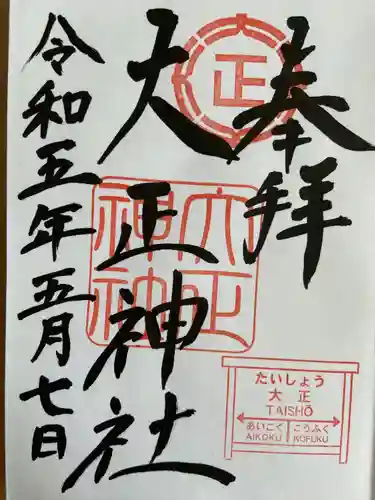 奉拝
大正神社
令和五年五月七日
正
大正
神社
たいしょう
大正
TAISHŌ
あいこく こうふく
AIKOKU KOFUKU